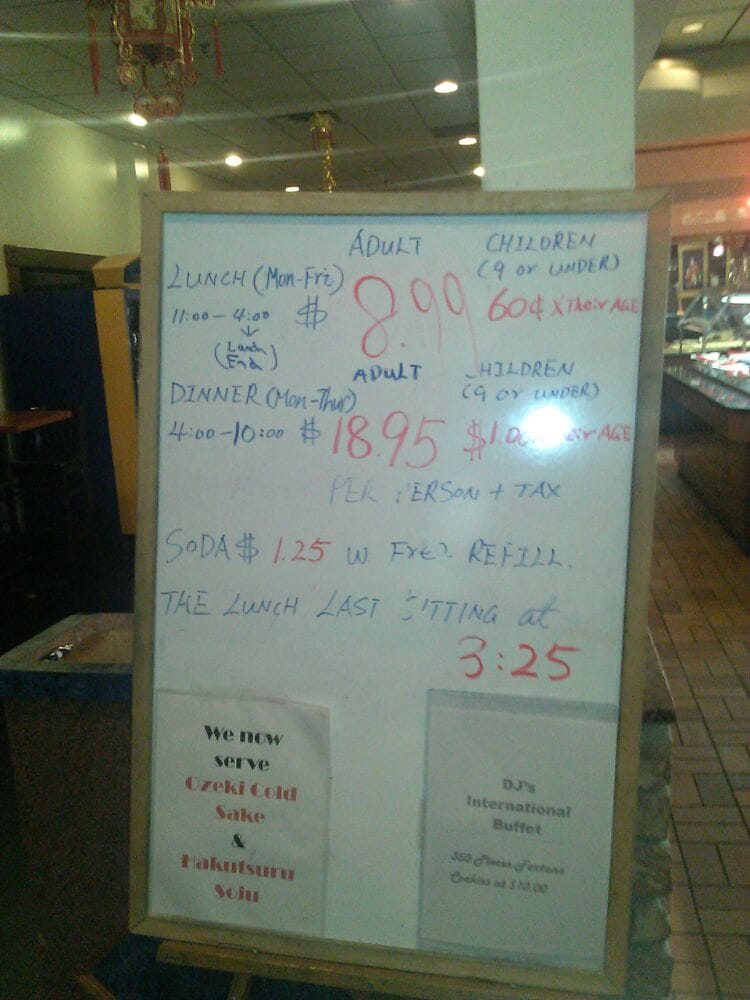 ADULT CHILDREN
LUNCH (Mon-Fri) (9 or UNDER)
11:00 - 4:00 $ 8.99 60¢ X Their AGE
(Lunch
End)
ADULT CHILDREN
DINNER (Mon-Thur) (9 or UNDER)
4:00 - 10:00 $ 18.95 $1.0 Their AGE
PER PERSON + TAX
SODA $ 1.25 w Free REFILL.
THE LUNCH LAST SITTING at
3:25
We now
serve
Ozeki Cold
Sake
&
Hakutsuru
Soju
DJ's
International
Buffet
350 Pieces Fortune
Cookies at $10.00